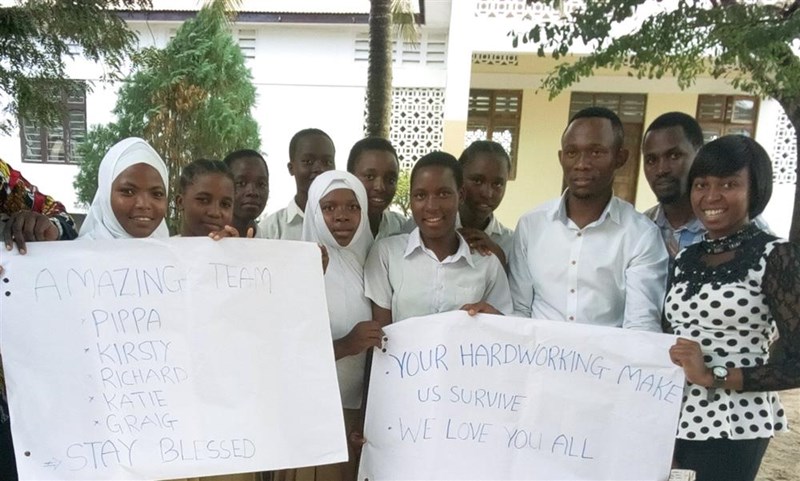 AMAZING TEAM
PIPPA
KIRSTY
RICHARD
KATIE
GRAIG
⇒ STAY BLESSED
• YOUR HARDWORKING MAKE
US SURVIVE
• WE LOVE YOU ALL